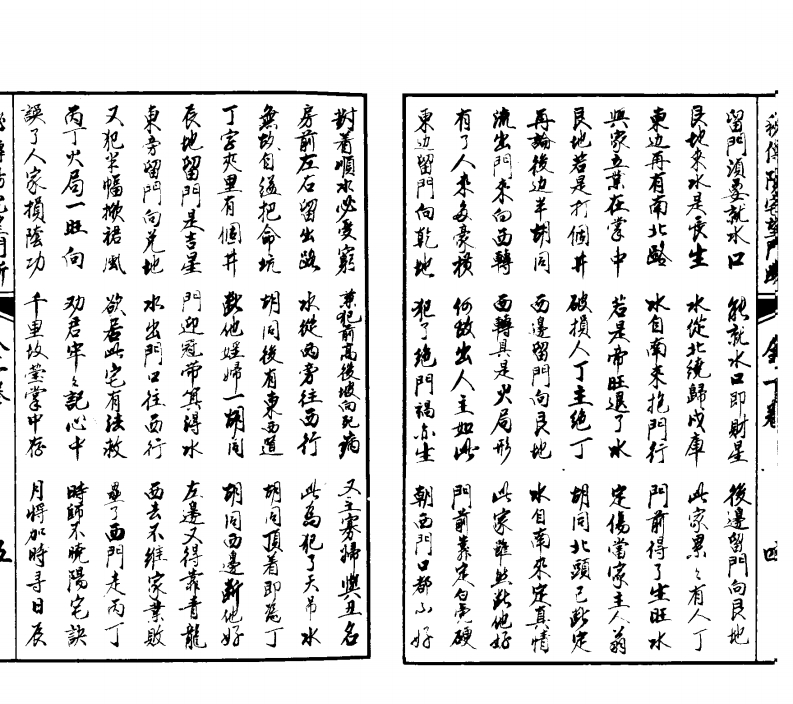 留門須要就水口 能就水口即財星 後邊留門向艮地
艮地來水是長生 水從北繞歸戌庫 此家累々有人丁
東边再有南北路 水自南來抱門行 門前得了生旺水
興家立業在掌中 若是帝旺退了水 定傷當家主人翁
艮地若是打個井 破損人丁主絕丁 胡同北頭已斷定
再論後边半胡同 西邊留門向艮地 水自南來定真情
流出門來向西轉 西轉具是火局形 此家雖然斷他好
有了人來多豪橫 何故出人主如此 門前靠定白虎硬
東边留門向乾地 犯了絕門禍亦生 朝西門口都不好
對着順水必受窮 兼犯前高後坡向死病 又主寡婦與丑名
房前左右留出路 水從西旁往西行 此為犯了天吊水
無故自縊把命坑 胡同後有東西道 胡同頂着即為丁
丁字夾里有個井 斷他婬婦一胡同 胡同西邊斷他好
辰地留門是吉星 門迎冠帶宜得水 左邊又得靠青龍
東旁留門向兌地 水出門口往西行 西去不維家業敗
又犯半幅掀裙風 欲居此宅有法救 壘了西門走丙丁
丙丁火局一旺向 劝君牢々記心中 時師不曉陽宅訣
誤了人家損陰功 千里坟塋掌中存 月將加時尋日辰